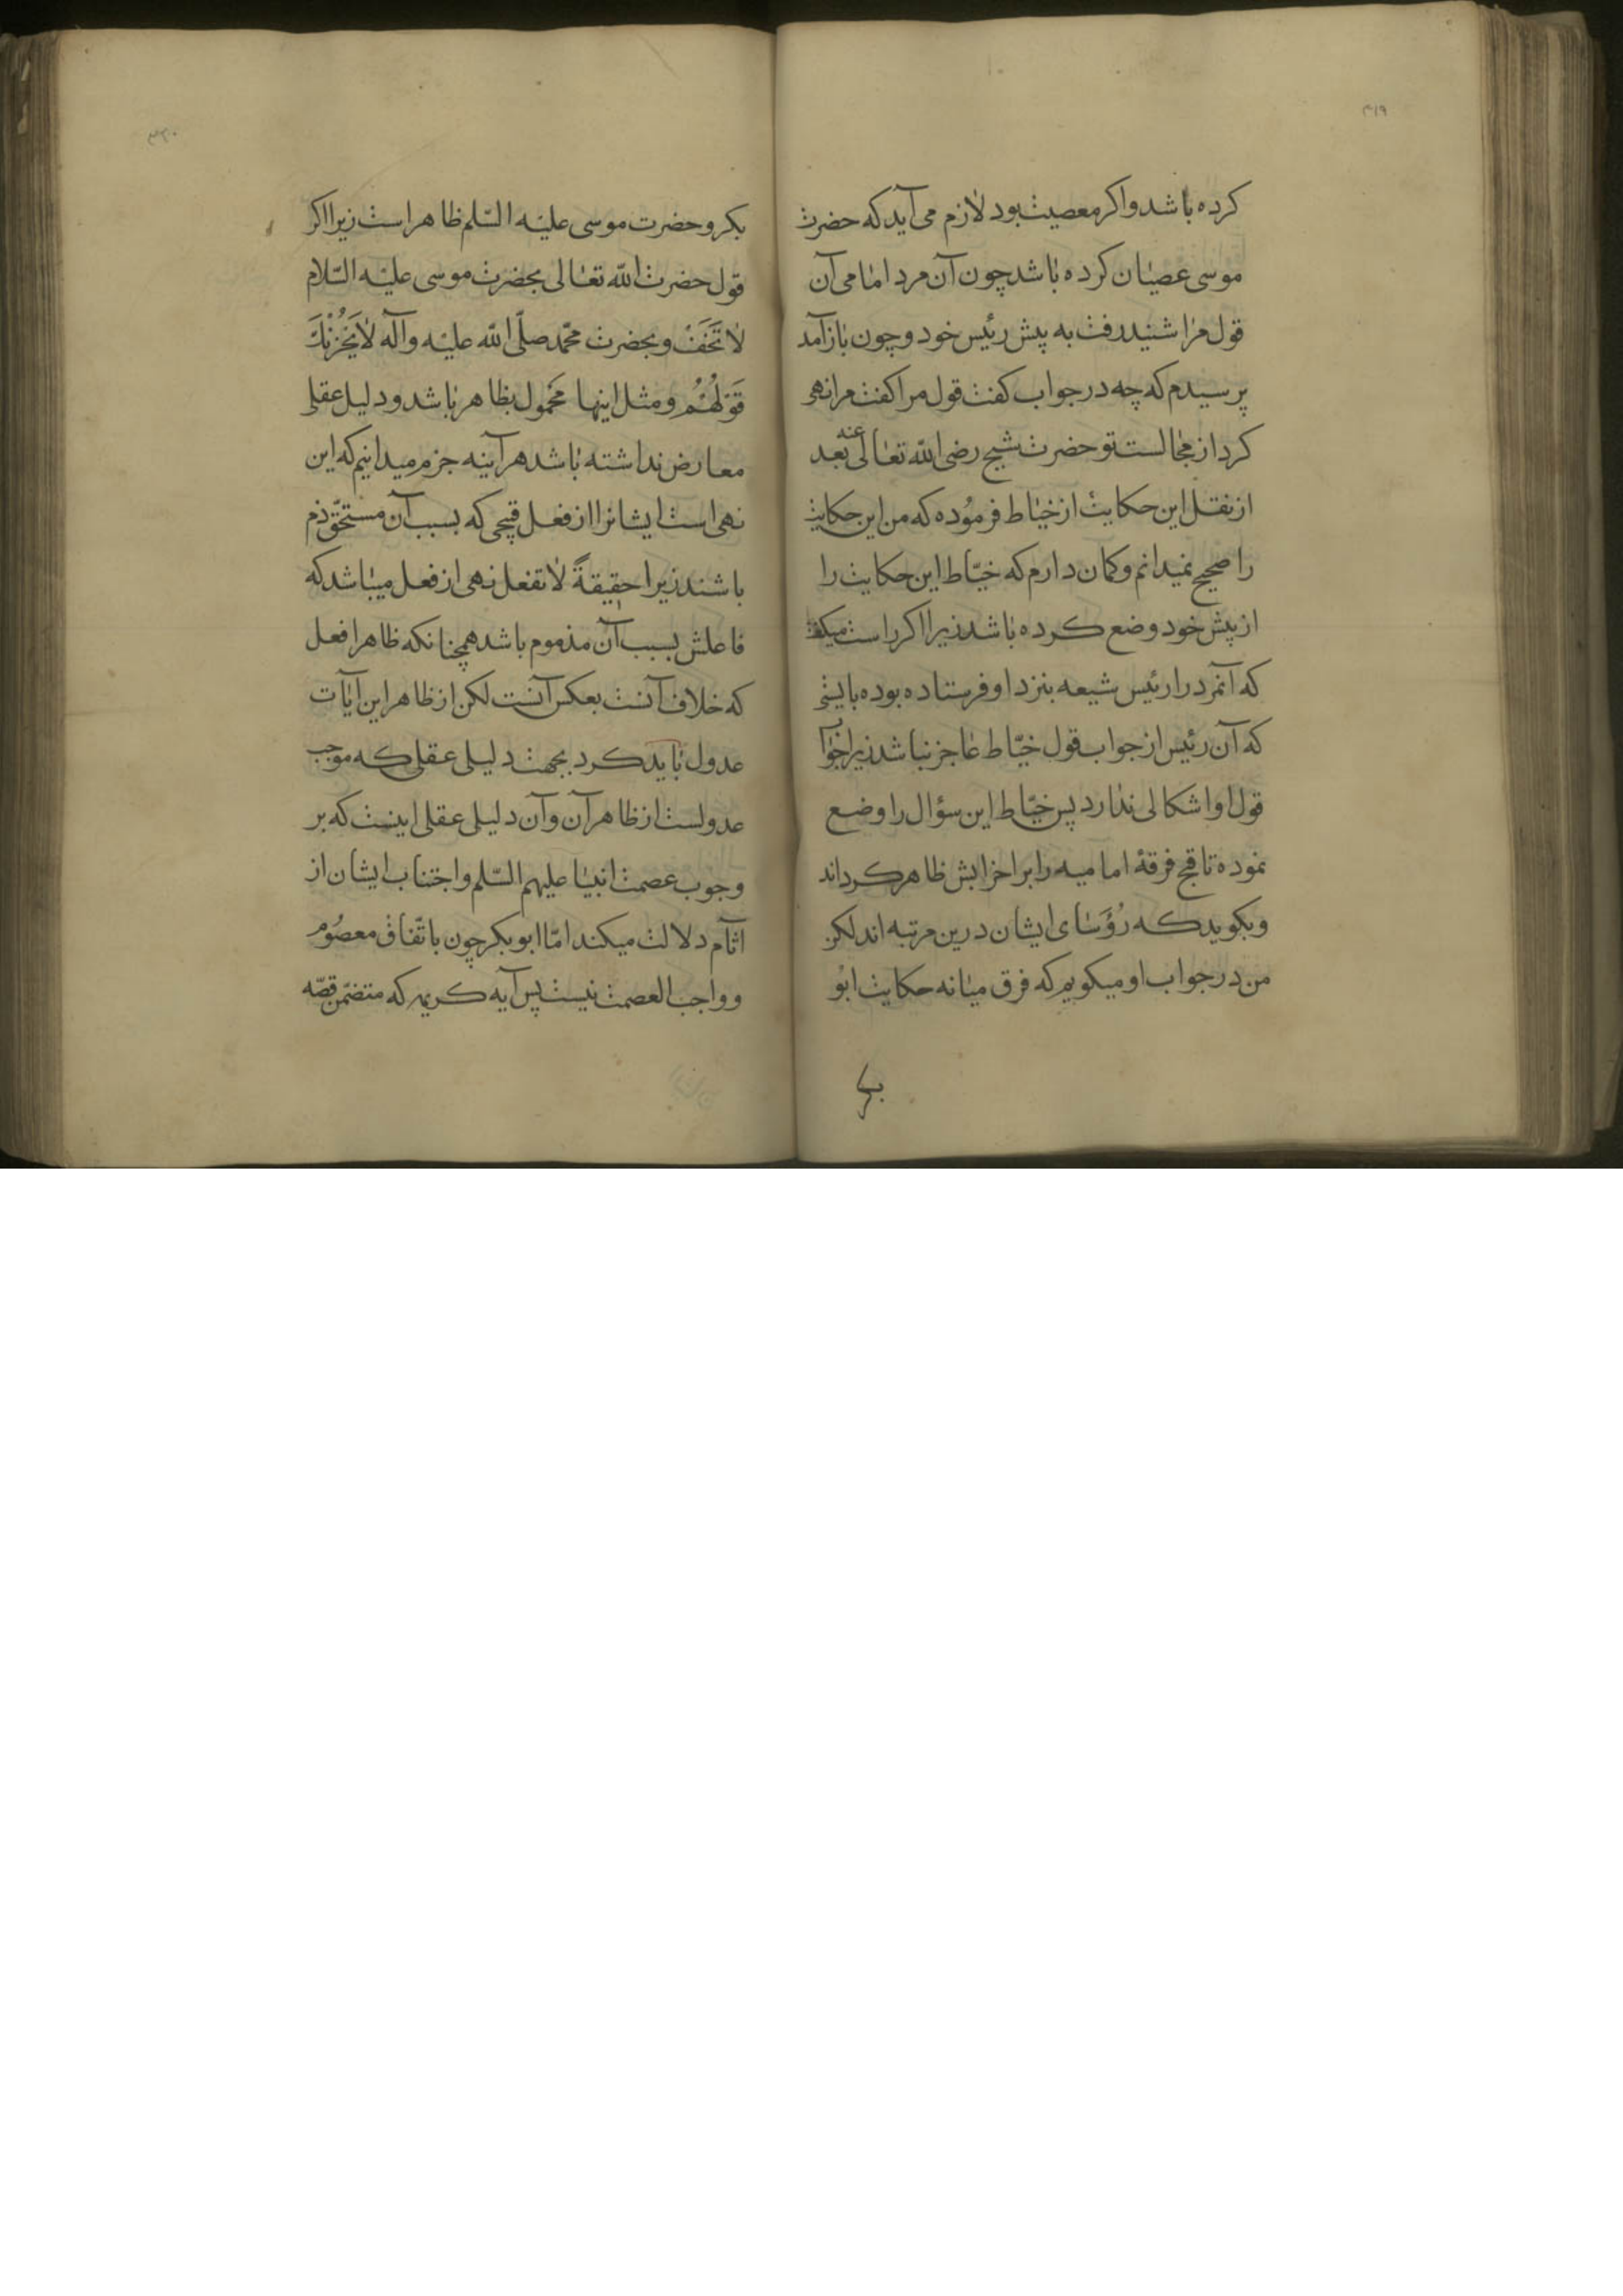 ۴۱۹
کرده باشد واکر معصیت بود لازم می آید که حضرت
موسی عصیان کرده باشد چون آن مرد امامی آن
قول مرا شنید رفت به پیش رئیس خود و چون باز آمد
پرسیدم که چه در جواب کفت قول مرا کفت مرا نهی
کرد از مجالست تو حضرت شیخ رضی الله تعالی عنه بعد
از نقل این حکایت از خیاط فرموده که من این حکایت
را صحیح نمیدانم وکمان دارم که خیّاط این حکایت را
از پیش خود وضع کرده باشد زیرا اکر راست میکفت
که آنمرد را رئیس شیعه بنزد او فرستاده بوده بایستی
که آن رئیس از جواب قول خیّاط عاجز نباشد زیرا جواب
قول او اشکالی ندارد پس خیّاط این سؤال را وضع
نموده تا قبح فرقهٔ امامیه را برا خزابش ظاهر کرداند
وبکوید که رُؤَسای ایشان درین مرتبه اند لکن
من در جواب او میکویم که فرق میانه حکایت ابو
بکر
بکر وحضرت موسی علیه السّلم ظاهر است زیرا اکر
قول حضرت الله تعالی بحضرت موسی علیه السّلام
لاتَخَفْ وبحضرت محمّد صلّی الله علیه وآله لایَحْزُنْكَ
قَوْلُهُمْ ومثل اینها محمول بظاهر باشد ودلیل عقلی
معارض نداشته باشد هرآینه جزم میدانیم که این
نهی است ایشانرا از فعل قبیحی که بسبب آن مستحقّ ذم
باشند زیرا حقیقةً لا تفعل نهی از فعل میباشد که
فاعلش بسبب آن مذموم باشد همچنانکه ظاهر افعل
که خلاف آنست بعکس آنست لکن از ظاهر این آیات
عدول باید کرد بجهت دلیلی عقلی که موجب
عدولست از ظاهر آن وآن دلیلی عقلی اینست که بر
وجوب عصمت انبیا علیهم السّلم واجتناب ایشان از
اثآم دلالت میکند امّا ابوبکر چون باتّفاق معصوم
وواجب العصمت نیست پس آیه کریمه که متضمّن قصّه